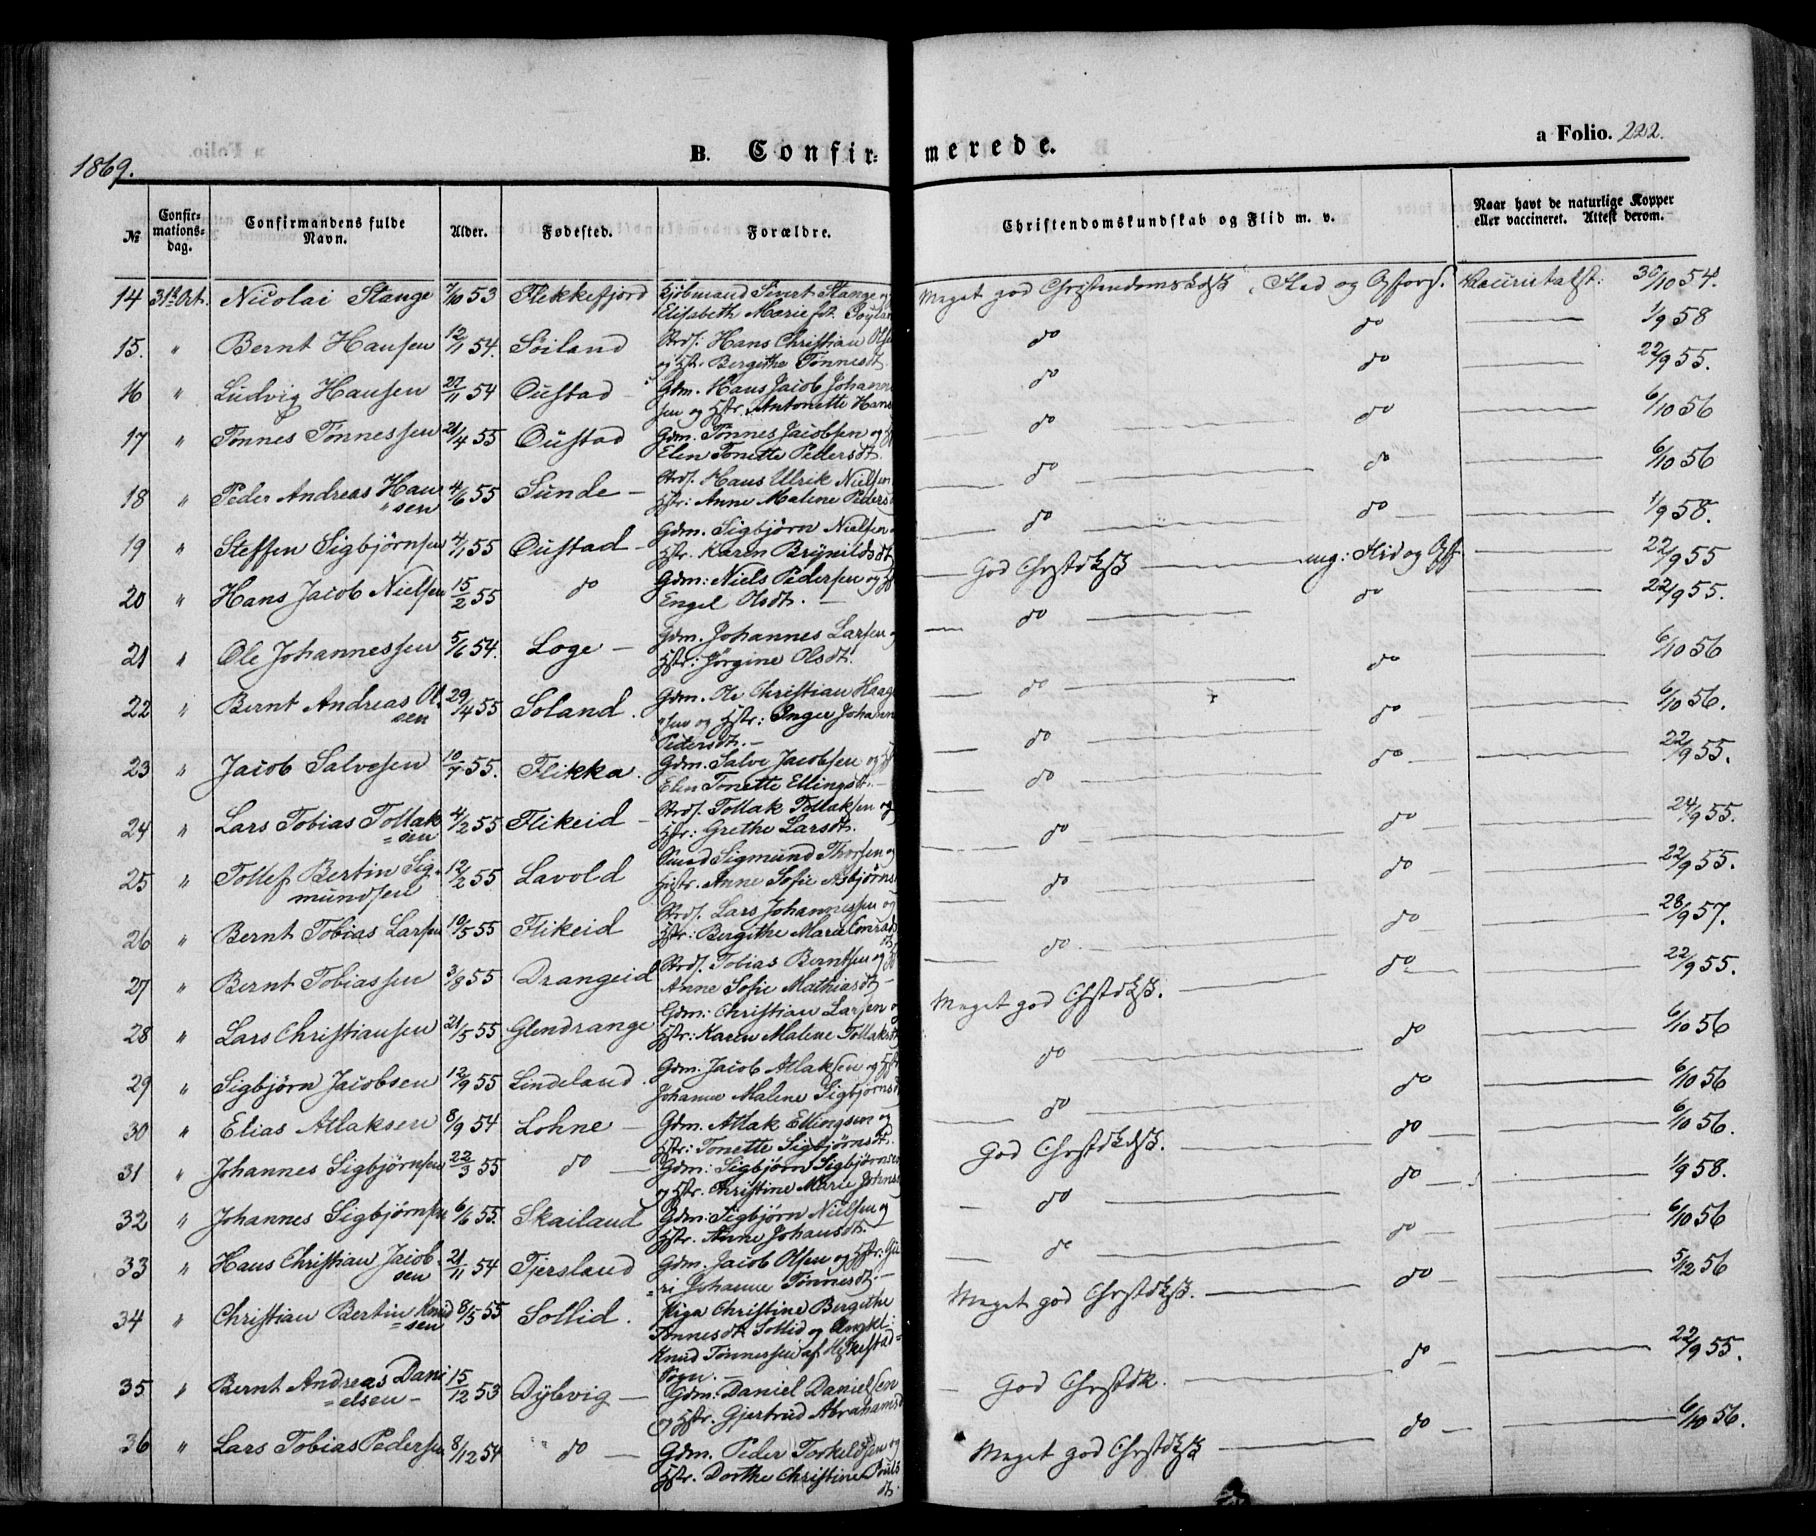 1869.
B. Confirmerede.
a Folio. 222.
№
Confirmations-dag.
Confirmandens fulde Navn.
Alder.
Fødested.
Forældre.
Christendomskundskab og Flid m. v.
Naar havt de naturlige Kopper eller vaccineret. Attest derom.
14 31te Oct. Nicolai Stange 7/10 53 Flekkefjord Kjøbmand Sivert Stange og Elisabeth Marie Meget god Christendomskdsk Flid og Opførs. 30/10 54.
15. " Bernt Hansen 12/11 54. Söiland Hans Christian Olsen og Hstr. Bergithe Tønnesdt. do do 1/9 58
16 " Ludvig Hansen 27/11 54 Oustad Gdm. Hans Jacob Johannesen og Hstr. Antonette Hans do do 22/9 55.
17 " Tønnes Tønnessen 21/4 55 Oustad Gdm. Tønnes Jacobsen og Elen Tonette Pedersdt. do do 6/10 56
18 " Peder Andreas Hansen 4/6 55 Sunde Hans Ulrik Nielsen Hstr: Anne Malene Peders do do 6/10 56
19 " Steffen Sigbjørnsen 4/1 55 Oustad Gdm. Sigbjørn Nielsen Hstr. Karen Brynildsdt. do do 1/9 58.
20 " Hans Jacob Nielsen 15/2 55 do Gdm: Niels Pedersen og Engel Olsdt. God Chrstdksk mg: Flid og Opf 22/9 55
21 " Ole Johannessen 5/6 54. Loge Gdm. Johannes Larsen Hstr: Jørgine Olsdt. do do 22/9 55.
22 " Bernt Andreas Olsen 29/4 55 Soland. Gdm. Ole Christian Haagensen og Hstr: Inger Johanne Pedersdt. do do 6/10 56
23 " Jacob Salvesen 10/7 55. Flikka. Gdm. Salve Jacobsen og Elen Tonette Ellingsdt. do do 6/10 56.
24 " Lars Tobias Tollaksen 4/2 55 Flikeid Tollak Tollaksen og Hstr: Grethe Larsdt. do do 22/9 55.
25 " Tollef Bertin Sigmundsen 12/2 55 Lavold Sigmund Thorsen og Hstr. Anne Sofie Asbjørns do do 24/9 55.
26 " Bernt Tobias Larsen 10/5 55 Flikeid Lars Johannessen og Hstr: Bergithe Marie Conradsdt. do do 22/9 55.
27 " Bernt Tobiassen 3/8 55 Drangeid Tobias Berntsen og Anne Sofie Mathiasdt. do do 28/9 57.
28 " Lars Christiansen 21/5 55 Glendrange Gdm: Christian Larsen og Hstr: Karen Malene Tollaksdt Meget god Chrstdksk. do 22/9 55.
29 " Sigbjørn Jacobsen 12/9 55 Lindeland. Gdm. Jacob Atlaksen og Hst Johanne Malene Sigbjørnsd do do 6/10 56
30 " Elias Atlaksen 8/9 54 Lohne Gdm. Atlak Ellingsen og Hstr: Tonette Sigbjørnsdt. do do 6/10 56
31 " Johannes Sigbjørnsen 22/3 55 do Gdm: Sigbjørn Sigbjørnsen og Hstr. Christine Marie Johns God Chrstdkdsk. do 6/10 56.
32 " Johannes Sigbjørnsen 6/6 55. Skailand Gdm: Sigbjørn Nielsen og Hstr. Anne Johansdt. do do 1/9 58.
33 " Hans Christian Jacobsen 21/11 54 Tjersland Gdm. Jacob Olsen og Hstr: Guri Johanne Tønnesdt. do do 6/10 56
34 " Christian Bertin Knudsen 8/5 55 Sollid. Piga Christine Bergithe Tønnesdt. Sollid og Ungkl: Knud Tønnessen af Hskestad Sogn. Meget god Chrstdksk. do 5/12 56
35 " Bernt Andreas Danielsen 15/12 53 Dybvig Gdm: Daniel Danielsen og Hstr. Gjertrud Abrahamsd God Chrstdk. do 22/9 55.
36 " Lars Tobias Pedersen 8/12 54 do Gdm. Peder Torkeldsen og Hstr. Dorthe Christine Poulsdt. Meget god Chrstdksk do 6/10 56.